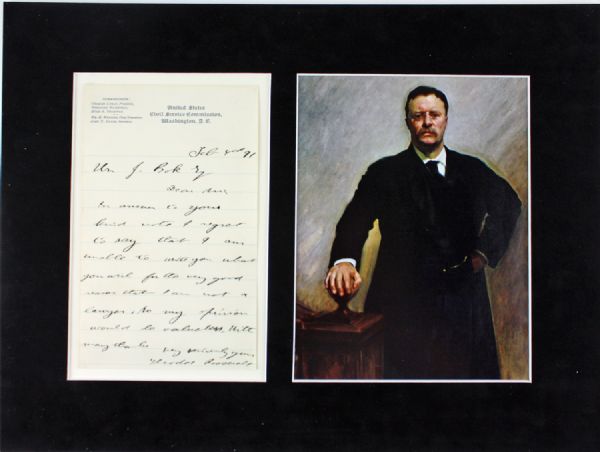 United States
Civil Service Commission,
Washington, D. C.
Feb 91
Wm J. Bok Esq
Dear Sir;
In answer to your
kind note I regret
to say that I am
unable to write you what
you wish for the very good
reason that I am not a
lawyer, so my opinion
would be valueless. With
many thanks
very sincerely yours
Theodore Roosevelt